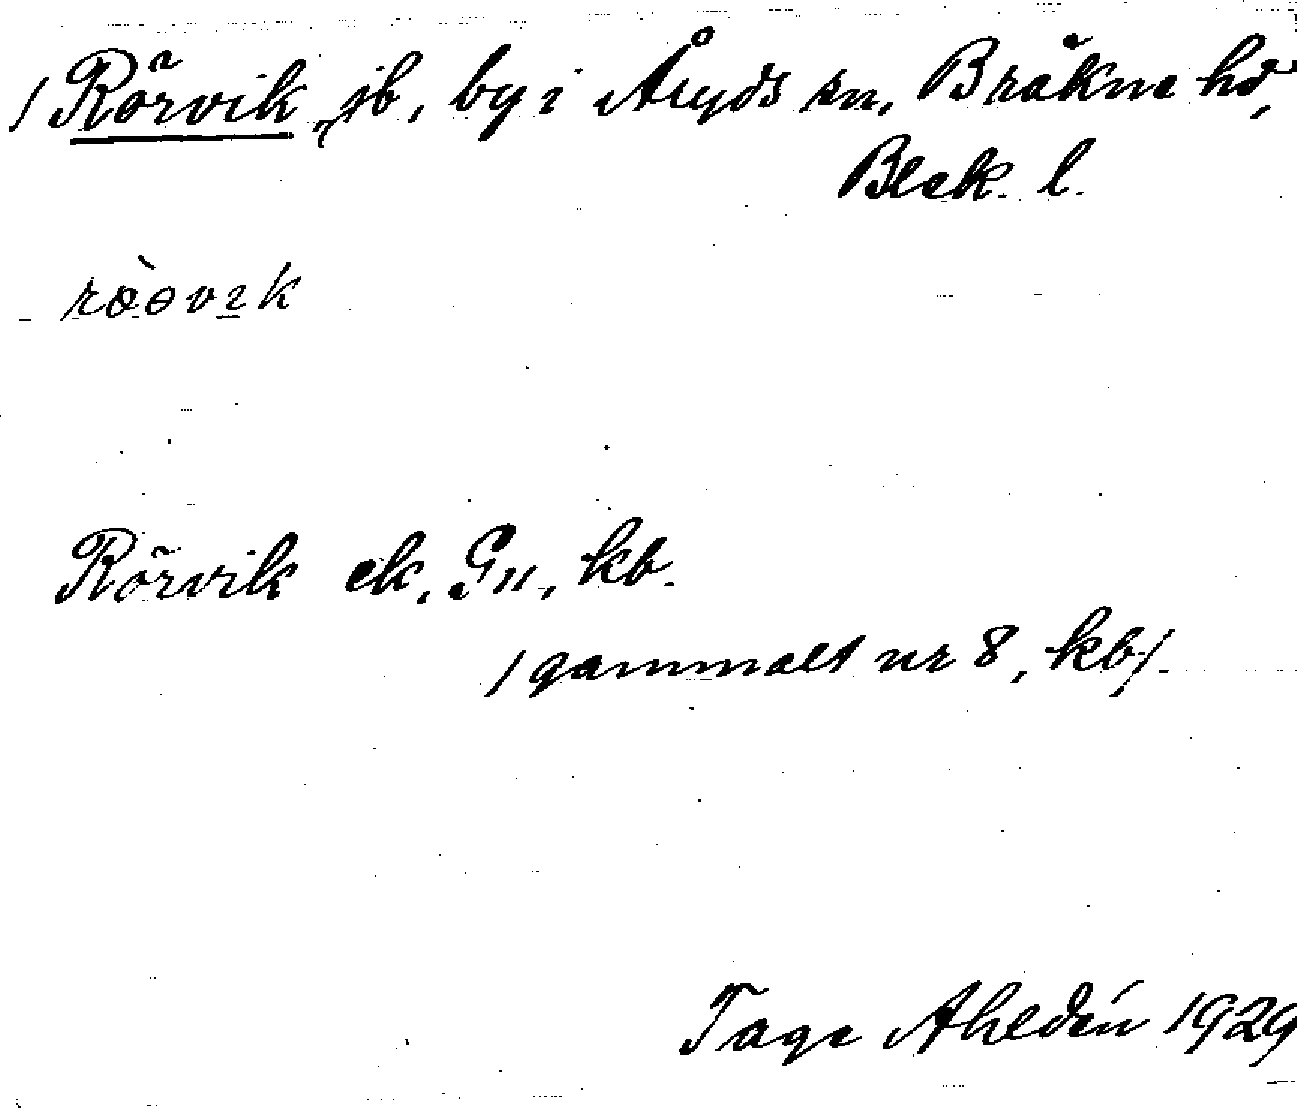 /Rörvik, jb, by i Åryds sn, Bräkne hd,
Blek. l.
röəvik
Rörvik ek, Gu, kb.
/gammalt nr 8, kb/.
Tage Ahldén 1929